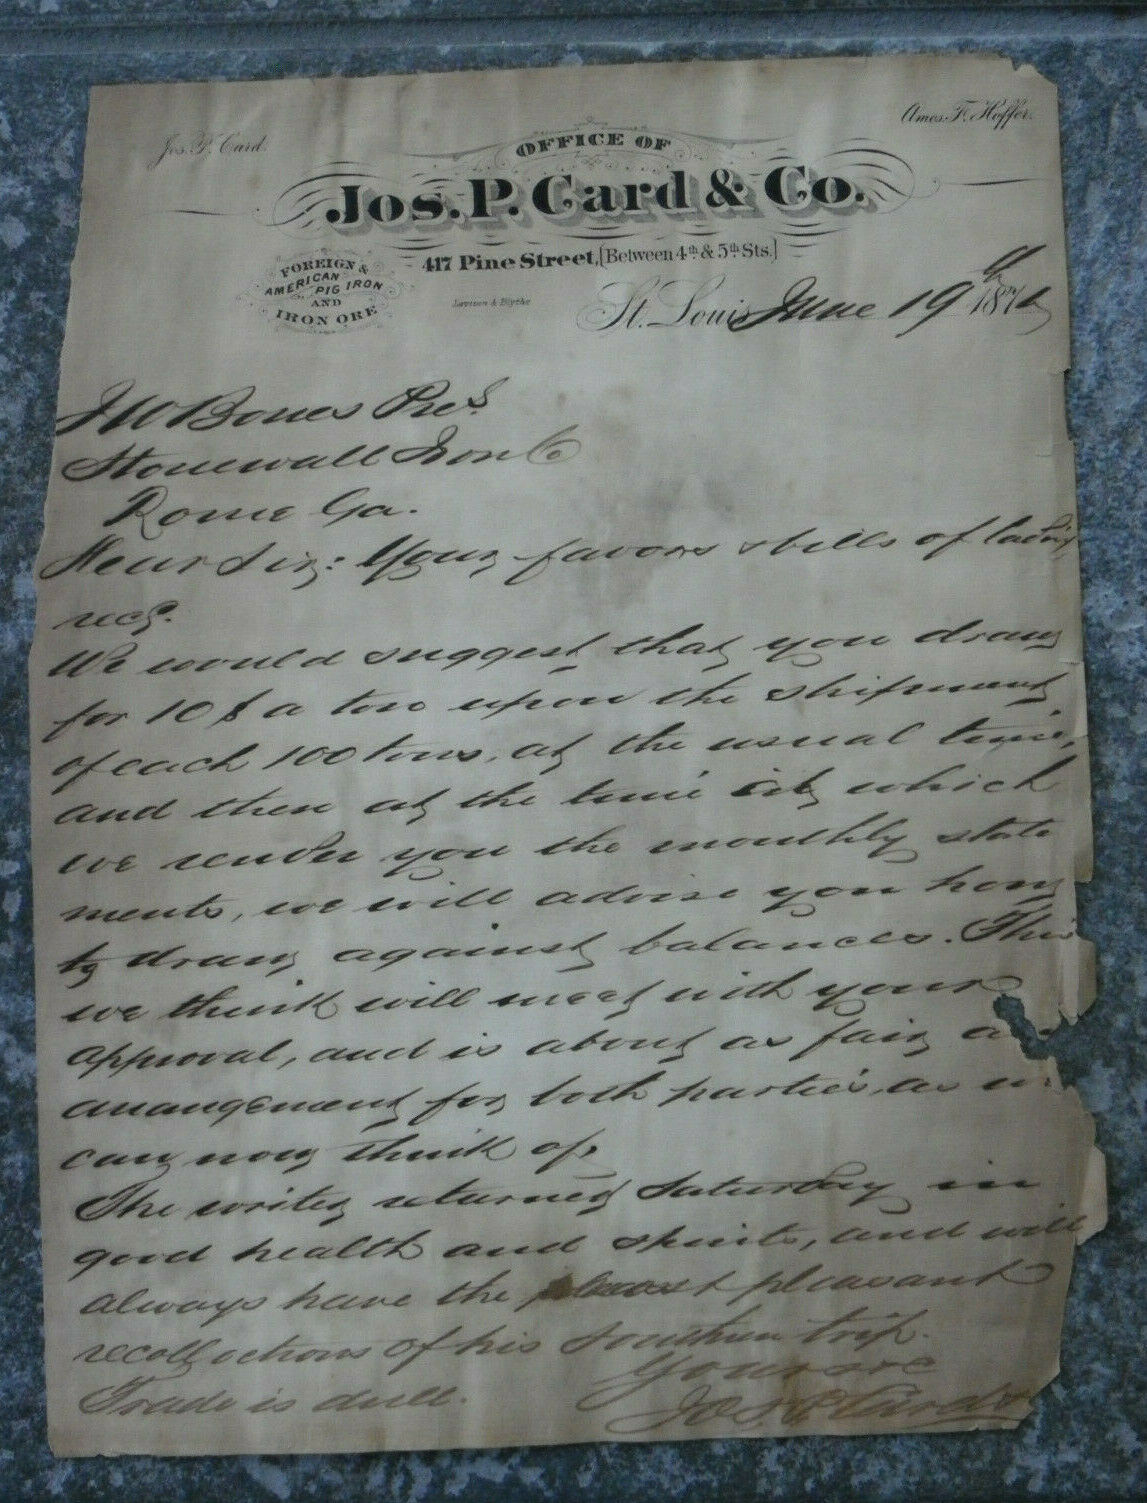 Jos. P. Card.
Amos. F. Hoffer.
OFFICE OF
Jos. P. Card & Co.
417 Pine Street, [Between 4th & 5th Sts.]
FOREIGN &
AMERICAN
PIG IRON
AND
IRON ORE
St. Louis June 19th 187
J W Bones Prest
Stonewall Iron Co
Rome Ga.
Dear Sir: Your favors & bills of lading
recd.
We would suggest that you draw
for 10 $ a ton upon the shipment
of each 100 tons, at the usual time,
and then at the time at which
we render you the monthly state
ments, we will advise you how
to draw against balances. This
we think will meet with your
approval, and is about as fair a
arrangement for both parties as we
can now think of,
The writer returned Saturday in
good health and spirits, and will
always have the most pleasant
recollections of his Southern trip.
Yours &c
Trade is dull.
Jos. P. Card &